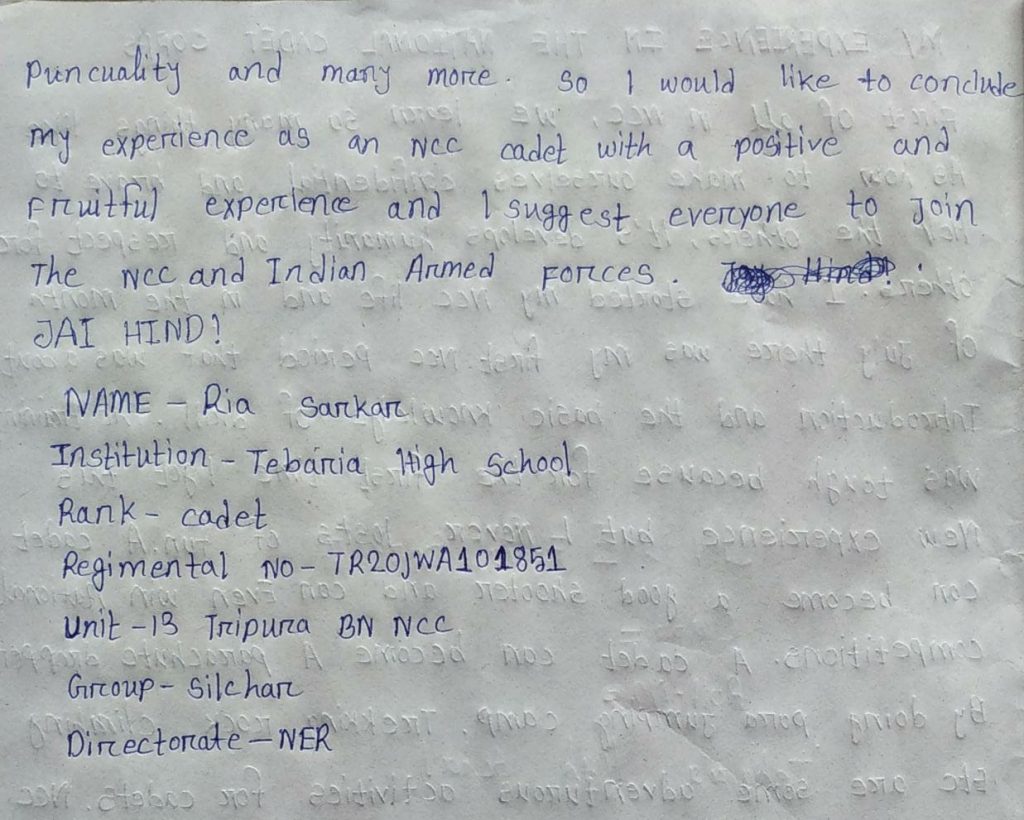 Puncuality and many more. So I would like to conclude
my experience as an NCC cadet with a positive and
Fruitful experience and I suggest everyone to Join
The NCC and Indian Armed Forces.
JAI HIND!
NAME - Ria Sarkar
Institution - Tebaria High School
Rank - cadet
Regimental NO - TR20JWA101851
Unit - 13 Tripura BN NCC
Group - Silchar
Directorate - NER